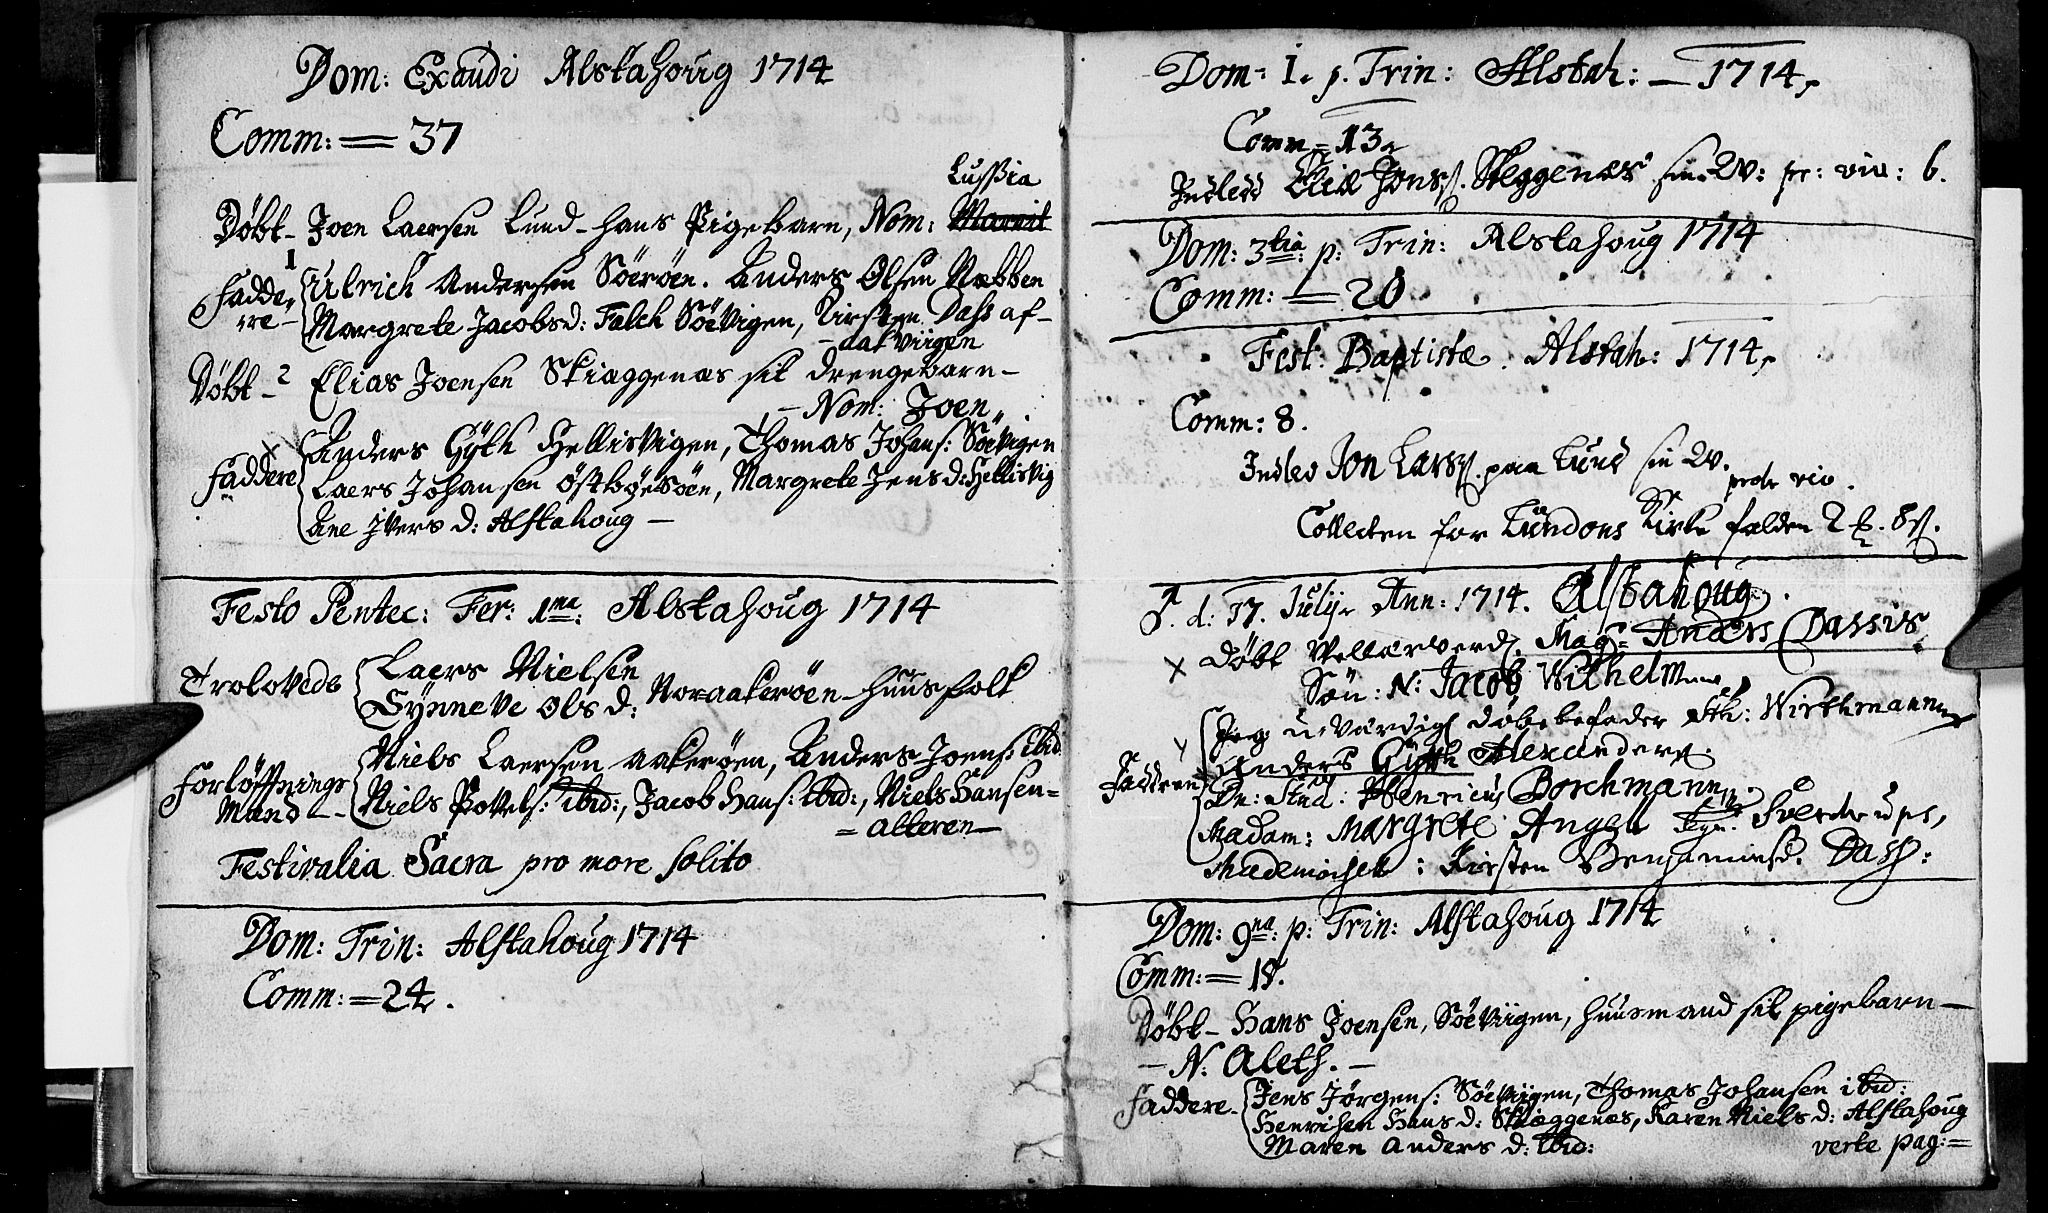 Dom: Exaudi Alstahoug 1714
Comm: = 37
Lussia
Døbt - Joen Laersen Lund - hans Pigebarn, Nom: Marrit
1
Fadde-
rre -
Ulrich Andersen Söeröen. Anders Olsen Nabben
Margrete Jacobsd: Falch Söevigen, Kirsten Dass af -
- aakviigen
Døbt - 2 Elias Joensen Skiaggenæs sit drengebarn -
- Nom: Joen
Faddere
Anders Gyth Hellisvigen, Thomas Johans: Söevigen
Laers Johansen Östbøesöen, Margrete Jens d: Hellisvig
Ane Jvers d: Alstahoug -
Festo Pentec: Fer: 1ma: Alstahoug 1714
Trolovede
Laers Nielsen
Synneve Ols d: Noraakeröen - huusfolk
Forløffnings
Mænd -
Niels Laersen aakeröen, Anders Joens: ibid:
Niels Povels: ibid:, Jacob Hans: ibid:, Niels Hansen =
= alteren -
Festivalia Sacra pro more solito
Dom: Trin: Alstahoug 1714
Comm: = 24.
Dom: 1. p. Trin: Alstah: - 1714,
Comm = 13
Indledd Elia Jonss. Skeggenæs sin Qv: pr: viv: 6.
Dom: 3tia: p: Trin: Alstahoug 1714
Comm: = 20
Fest: Baptistæ. Alstah: 1714,
Comm: 8.
Indled Jon Larss. paa Lund sin Qv.
viv.
Collecten for Tundons Kirke falden 2 . 8 s.
d: 17. Julij Ann: 1714. Alstahoug.
Døbt Vellærverd. Mag: Anders Dassis
Søn: N: Jacob Wilhelm
Jeg uværdig døbebefader : Wirthmann
Fadderne
Anders Gyth Alexanders.
Dn: Stud: Henricus Borchmann.
Madam: Margrete Angell Sverdrups,
Mademoiselle: Kirsten Benjaminsd. Dass:
Dom: 9na: p: Trin: Alstahoug 1714
Comm: = 18.
Døbt - Hans Joensen, Söeviigen, huusmand sit pigebarn -
- N: Aleth. -
Faddere -
Jens Jørgens: Söeviigen, Thomas Johansen ibid:
Henrichen Hans d: Skieggenæs, Karen Niels d: Alstahoug
Maren Anders d: ibid:
verte pag: =